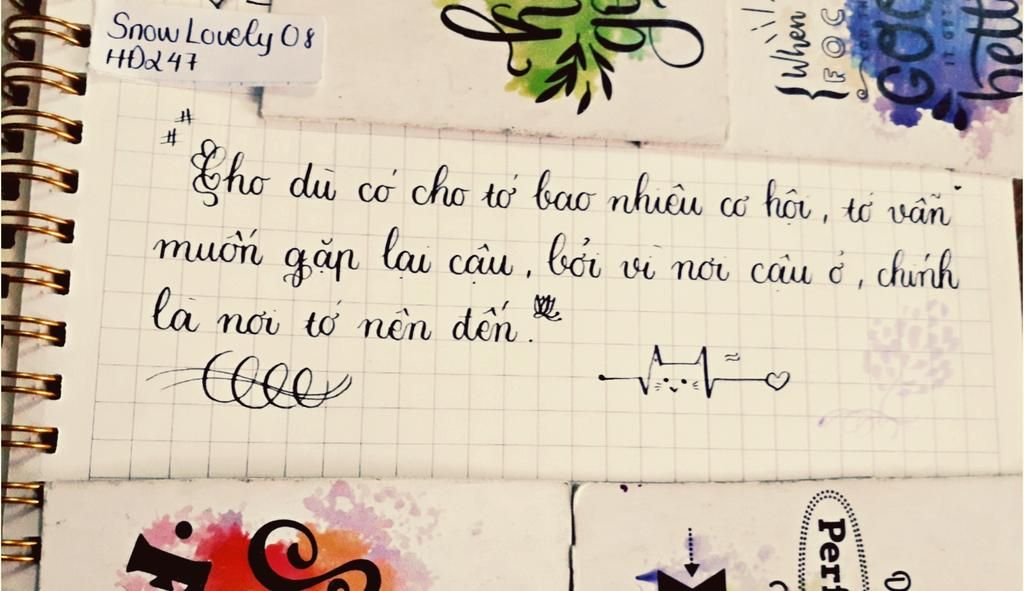 Snow Lovely 08
HĐ247
# #
Cho dù có cho tớ bao nhiêu cơ hội, tớ vẫn
muốn gặp lại cậu, bởi vì nơi cậu ở, chính
là nơi tớ nên đến.
When
FOC
GOO
bett
Perf